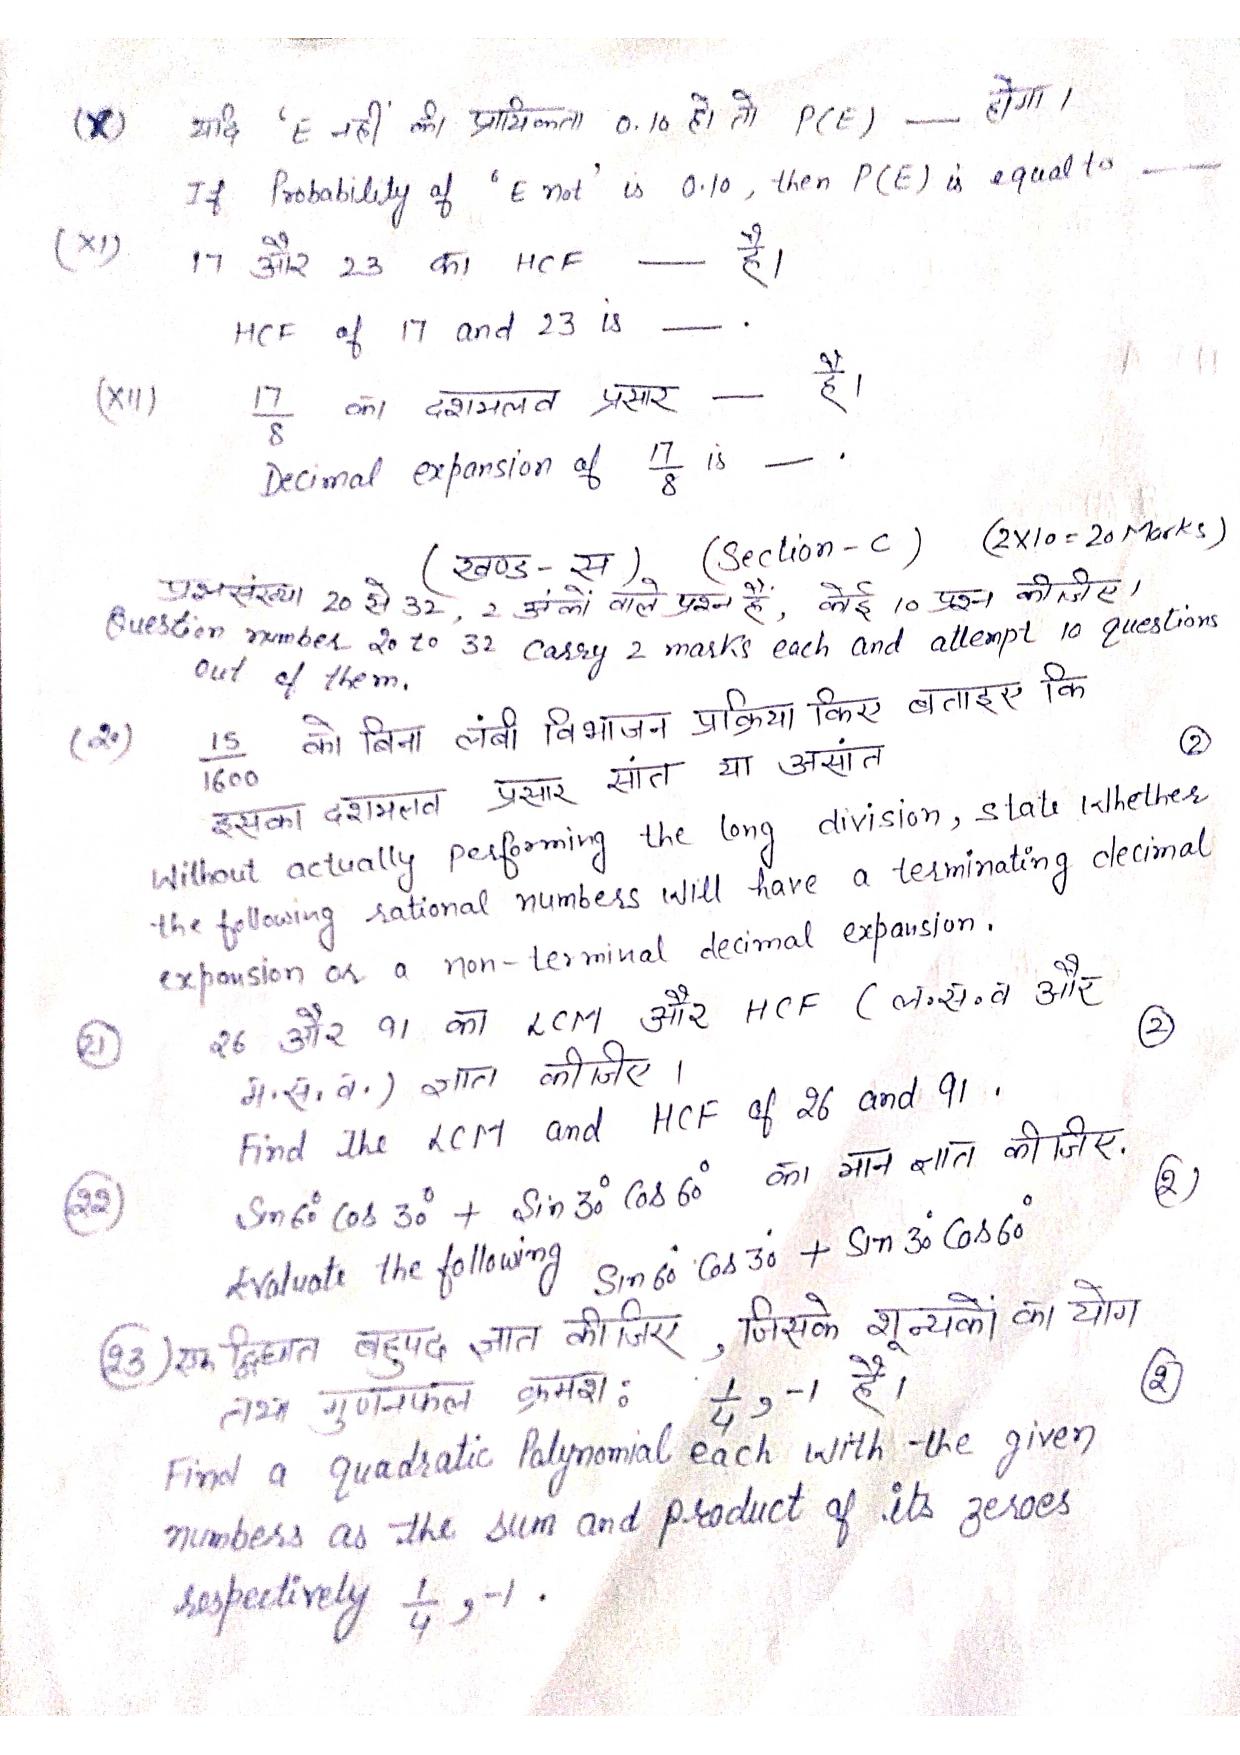 (X) यदि 'E नहीं' की प्रायिकता 0.10 है। तो P(E) — होगा।
If Probability of 'E not' is 0.10, then P(E) is equal to —
(XI) 17 और 23 का HCF — है।
HCF of 17 and 23 is — .
(XII) 17/8 का दशमलव प्रसार — है।
Decimal expansion of 17/8 is — .
(खण्ड-स) (Section-C) (2X10=20 Marks)
प्रश्न संख्या 20 से 32, 2 अंकों वाले प्रश्न हैं, कोई 10 प्रश्न कीजीए।
Question number 20 to 32 carry 2 marks each and attempt 10 questions
out of them.
(20) 15/1600 को बिना लंबी विभाजन प्रक्रिया किए बताइए कि
इसका दशमलव प्रसार सांत या असांत (2)
Without actually performing the long division, state whether
the following rational numbers will have a terminating decimal
expansion or a non-terminal decimal expansion.
(21) 26 और 91 का LCM और HCF (ल.स.व और
म.स.व.) ज्ञात कीजिए। (2)
Find the LCM and HCF of 26 and 91.
(22) Sin60° Cos30° + Sin30° Cos60° का मान ज्ञात कीजिए. (2)
Evaluate the following Sin60° Cos30° + Sin30° Cos60°
(23) एक द्विघात बहुपद ज्ञात कीजिए, जिसके शून्यकों का योग
तथा गुणनफल क्रमशः 1/4, -1 है। (2)
Find a quadratic Polynomial each with the given
numbers as the sum and product of its zeroes
respectively 1/4, -1.